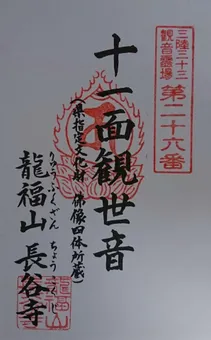 三陸三十三
観音霊場
第二十六番
十一面観世音
(県指定文化財 佛像四体所蔵)
りゅうふくざん ちょう
龍福山 長谷寺